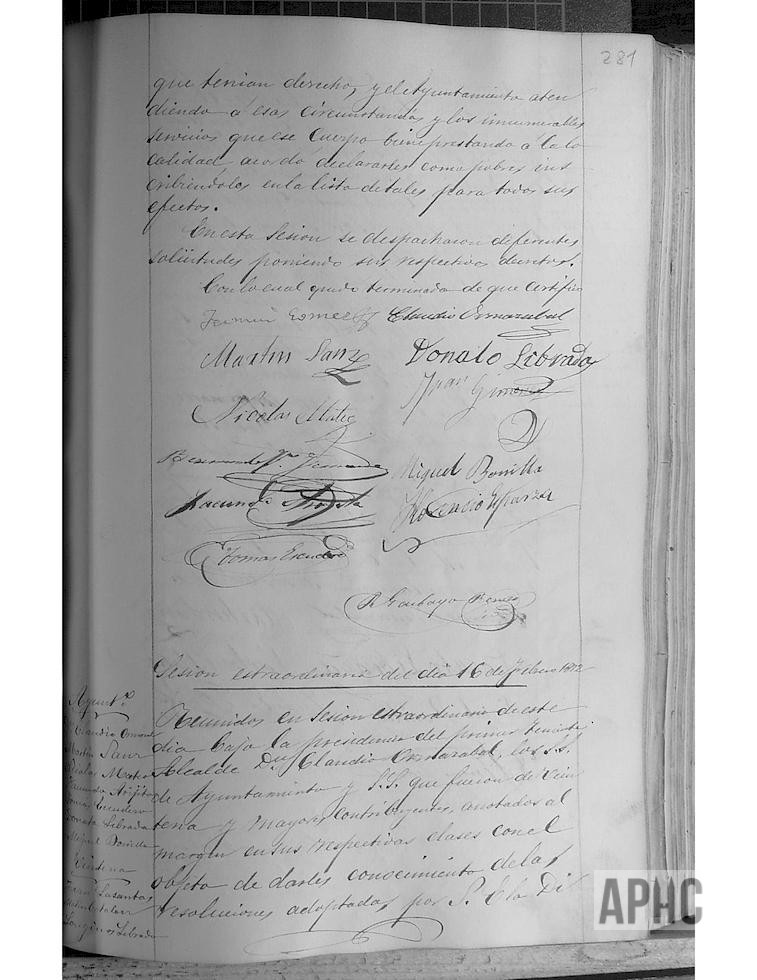 281
que tenian derecho, y el Ayuntamiento aten
diendo á esas circunstancias y los innumerables
servicios que ese Cuerpo biene prestando á la lo
calidad acordo declararles como pobres ins
cribiendoles en la lista de tales para todos sus
efectos.
En esta Sesion se despacharon diferentes
solicitudes poniendo sus respectivos decretos.
Con lo cual quedo terminada de que certifico
Fermin Claudio Ormazabal
Martin Sanz Donato Librada
Juan Gimenez
Nicolas Mateo
Miguel Bonilla
Facundo Florencio Esparza
Tomas Escudero
R. Garbayo
Sesion estraordinaria del dia 16 de Febrero
Ayunt.º
Claudio Ormazabal
Martin Sanz
Nicolas Mateo
Facundo
Tomas Escudero
Donato Librada
Miguel Bonilla
Veintena
Juan Lasantas
Longinos Librada
Reunidos en Sesion estraordinaria de este
dia bajo la presidencia del primer Teniente
Alcalde Dn Claudio Ormazabal, los S.S.
de Ayuntamiento y S.S. que fueron de Vein
tena y mayores contribuyentes, anotados al
margen en sus respectivas clases con el
objeto de darles conocimiento de las
resoluciones adoptadas por S. E la Di
APHC